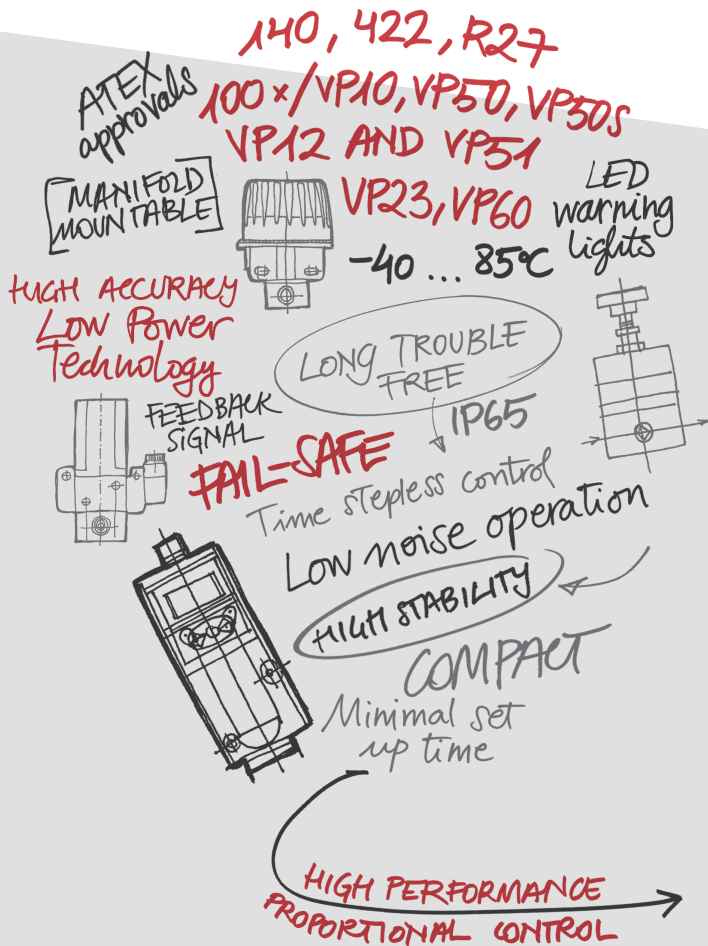 140, 422, R27
ATEX
approvals
100x/VP10, VP50, VP50s
VP12 AND VP51
VP23, VP60
MANIFOLD
MOUNTABLE
LED
warning
lights
-40 ... 85°C
HIGH ACCURACY
Low Power
Technology
LONG TROUBLE
FREE
FEEDBACK
SIGNAL
IP65
FAIL-SAFE
Time stepless control
Low noise operation
HIGH STABILITY
COMPACT
Minimal set
up time
HIGH PERFORMANCE
PROPORTIONAL CONTROL